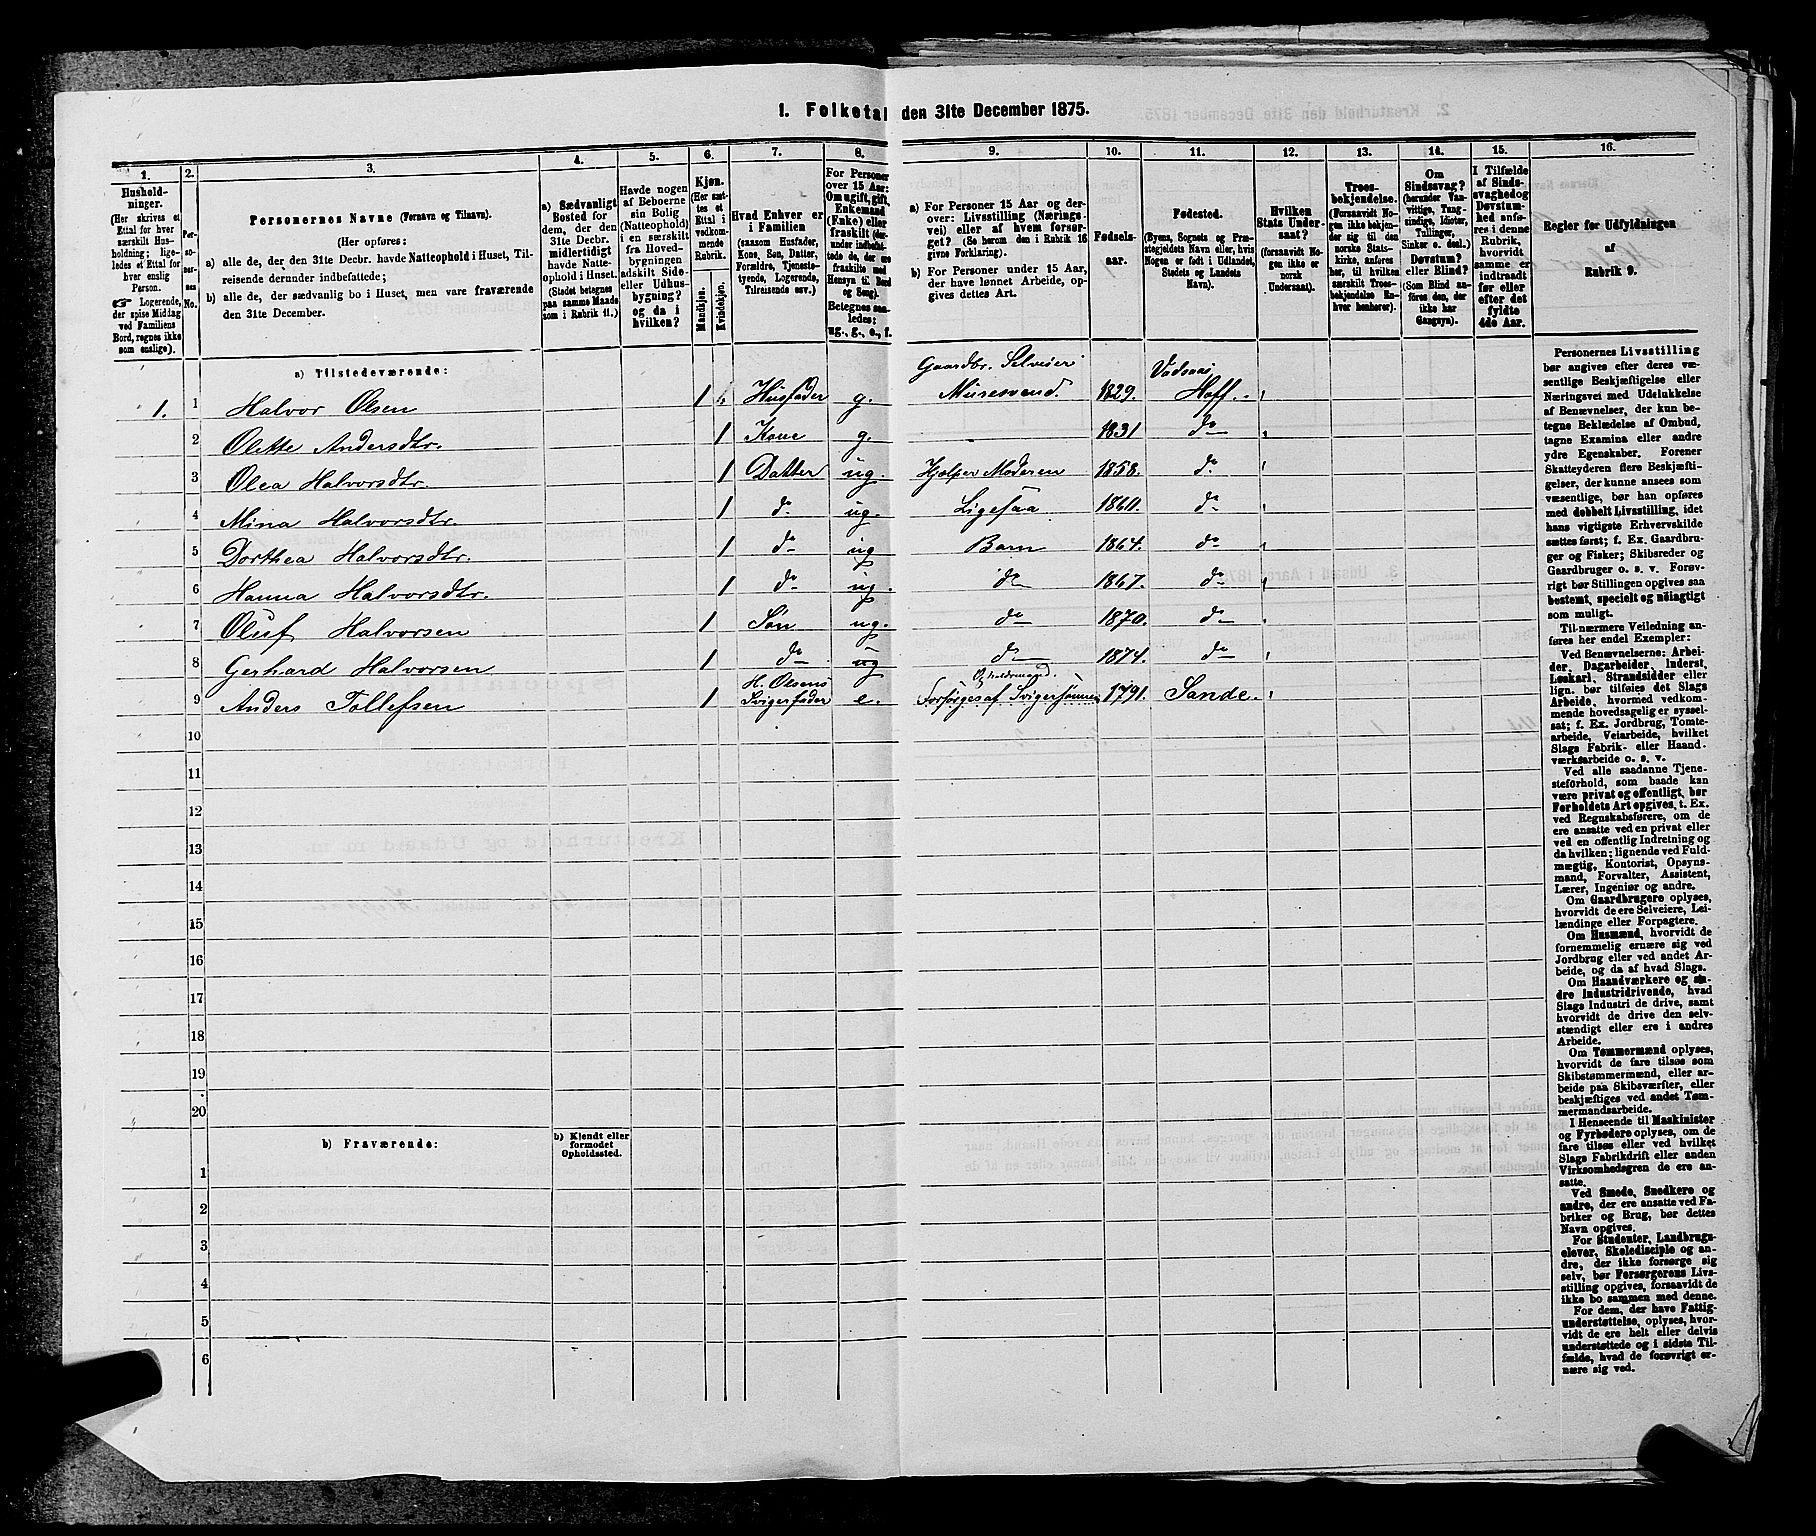 1. Folketal den 31te December 1875.
1. 2. 3. 4. 5. 6. 7. 8. 9. 10. 11. 12. 13. 14. 15. 16.
Husholdninger. (Her skrives et Ettal for hver særskilt Husholdning; ligeledes et Ettal for hver enslig Person. ☞ Logerende, der spise Middag ved Familiens Bord, regnes ikke som enslige).
Personernes No.
Personernes Navne (Fornavn og Tilnavn).
(Her opføres:
a) alle de, der den 31te Decbr. havde Natteophold i Huset, Tilreisende derunder indbefattede;
b) alle de, der sædvanlig bo i Huset, men vare fraværende den 31te December.
a) Sædvanligt Bosted for dem, der den 31te Decbr. midlertidigt havde Natteophold i Huset. (Stedet betegnes paa samme Maade som i Rubrik 11.)
Havde nogen af Beboerne sin Bolig (Natteophold) i en særskilt fra Hovedbygningen adskilt Side- eller Udhusbygning? og da i hvilken?
Kjøn. (Her sættes et Ettal i vedkommende Rubrik.
Mandkjøn. Kvindekjøn.
Hvad Enhver er i Familien (saasom Husfader, Kone, Søn, Datter, Forældre, Tjenestetyende, Logerende, Tilreisende osv.)
For Personer over 15 Aar: Om ugift, gift, Enkemand (Enke) eller fraskilt
Betegnes saaledes: ug., g., e., f.
a) For Personer 15 Aar og derover: Livsstilling (Næringsvei) eller af hvem forsørget? (Se herom den i Rubrik 16 givne Forklaring).
b) For Personer under 15 Aar, der have lønnet Arbeide, opgives dettes Art.
Fødselsaar.
Fødested. (Byens, Sognets og Præstegjeldets Navn eller, hvis Nogen er født i Udlandet, Stedets og Landets Navn).
Hvilken Stats Undersaat? (forsaavidt Nogen ikke er norsk Undersaat).
Troesbekjendelse. (Forsaavidt Nogen ikke bekjender sig til den norske Statskirke, anføres her, til hvilken særskilt Troesbekjendelse Enhver henhører).
Om Sindssvag? (herunder Vanvittige, Tungsindige, Idioter, Tullinger, Sinker o. desl.) Døvstum? eller Blind? (Som Blind anføres den, der ikke har Gangsyn).
I Tilfælde af Sindssvaghed og Døvstumhed anføres i denne Rubrik, hvorvidt samme er indtraadt før eller efter det fyldte 4de Aar.
Regler for Udfyldningen af Rubrik 9.
a) Tilstedeværende:
Gaardbr. Selveier
1. 1 Halvor Olsen 1 Husfader g. 1829. Hoff.
2 Olette Andersdtr. 1 Kone g. 1831 do
3 Olea Halvorsdtr. 1 Datter ug. Hjelper Moderen 1858. do
4 Mina Halvorsdtr. 1 do ug. Ligesaa 1860. do
5 Dorthea Halvorsdtr. 1 do ug Barn 1864. do
6 Hanna Halvorsdtr. 1 do ug. do 1867. do
7 Oluf Halvorsen 1 Søn ug. do 1870. do
8 Gerhard Halvorsen 1 do ug do 1874. do
H. Olsens
9 Anders Tollefsen 1 Svigerfader e. Forsørges af Svigersønnen 1791. Sande.
10
11
12
13
14
15
16
17
18
19
20
b) Fraværende: b) Kjendt eller formodet Opholdssted.
1
2
3
4
5
6
Personernes Livsstilling
bør angives efter deres væ-
sentlige Beskjæftigelse eller
Næringsvei med Udelukkelse
af Benævnelser, der kun be-
tegne Beklædelse af Ombud,
tagne Examina eller andre
ydre Egenskaber. Forener
Skatteyderen flere Beskjæfti-
gelser, der kunne ansees som
væsentlige, bør han opføres
med dobbelt Livsstilling, idet
hans vigtigste Erhvervskilde
sættes først; f. Ex. Gaardbru-
ger og Fisker; Skibsreder og
Gaardbruger o. s. v. Forøv-
rigt bør Stillingen opgives saa
bestemt, specielt og nøiagtigt
som muligt.
Til nærmere Veiledning an-
føres her endel Exempler:
Ved Benævnelserne: Arbei-
der, Dagarbeider, Inderst,
Løskarl, Strandsidder eller
lign. bør tilføies det Slags
Arbeide, hvormed vedkom-
mende hovedsagelig er syssel-
sat; f. Ex. Jordbrug, Tomte-
arbeide, Veiarbeide, hvilket
Slags Fabrik- eller Haand-
værksarbeide o. s. v.
Ved alle saadanne Tjene-
steforhold, som baade kan
være privat og offentligt, bør
Forholdets Art opgives, t. Ex.
ved Regnskabsførere, om de
ere ansatte ved en privat eller
ved en offentlig Indretning og
da hvilken; lignende ved Fuld-
mægtig, Kontorist, Opsyns-
mand, Forvalter, Assistent,
Lærer, Ingeniør og andre.
Om Gaardbrugere oplyses,
hvorvidt de ere Selveiere, Lei-
lændinge eller Forpagtere.
Om Husmænd, hvorvidt de
fornemmelig ernære sig ved
Jordbrug eller ved andet Ar-
beide, og da af hvad Slags.
Om Haandværkere og an-
dre Industridrivende, hvad
Slags Industri de drive, samt
hvorvidt de drive den selv-
stændigt eller ere i andres
Arbeide.
Om Tømmermænd oplyses,
hvorvidt de fare tilsøs som
Skibstømmermænd, eller ar-
beide paa Skibsværfter, eller
beskjæftiges ved andet Tøm-
mermandsarbeide.
I Henseende til Maskinister
og Fyrbødere oplyses, om de
fare tilsøs eller ved hvilket
Slags Fabrikdrift eller anden
Virksomhedsgren de ere an-
satte.
Ved Smede, Snedkere og
andre, der ere ansatte ved Fa-
briker og Brug, bør dettes
Navn opgives.
For Studenter, Landbrugs-
elever, Skoledisciple og an-
dre, der ikke forsørge sig
selv, bør Forsørgerens Livs-
stilling opgives, forsaavidt de
ikke bo sammen med denne.
For dem, der have Fattig-
understøttelse, oplyses, hvor-
vidt de ere helt eller delvis
understøttede og i sidste Til-
fælde, hvad de forøvrigt er-
nære sig ved.